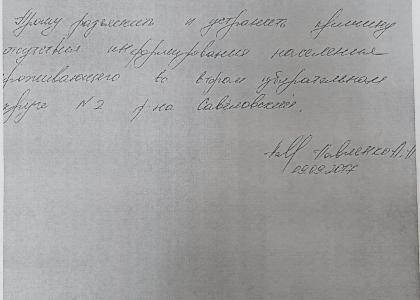 Прошу разъяснить и устранить причину
отсутствия информирования населения
проживающего во втором избирательном
округе №2 р-на Савёловский.
Павленко А.
09.09.2017